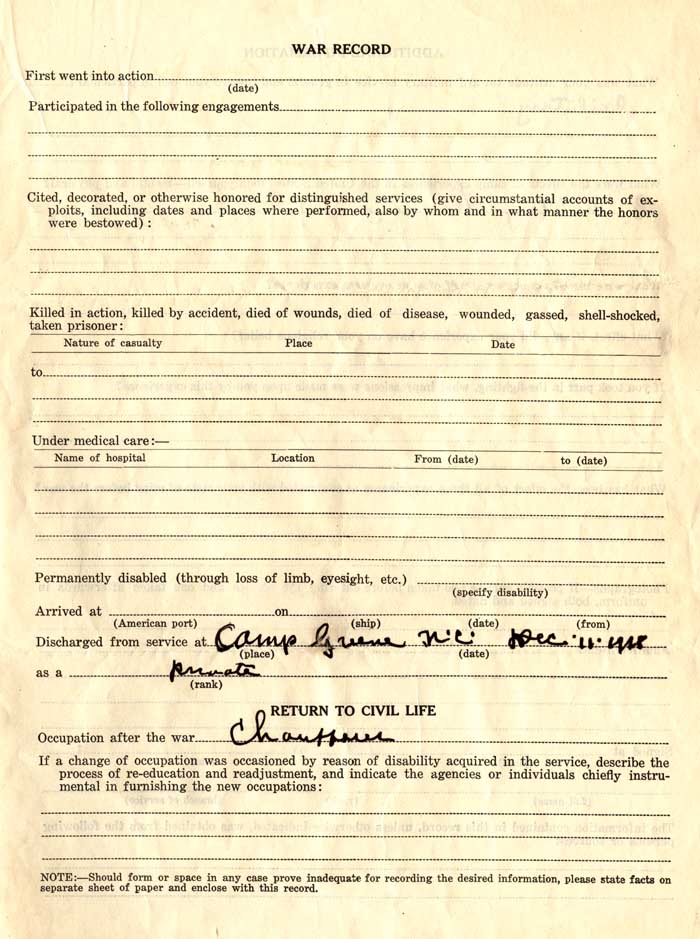 WAR RECORD
First went into action
(date)
Participated in the following engagements
Cited, decorated, or otherwise honored for distinguished services (give circumstantial accounts of ex-
ploits, including dates and places where performed, also by whom and in what manner the honors
were bestowed) :
Killed in action, killed by accident, died of wounds, died of disease, wounded, gassed, shell-shocked,
taken prisoner:
Nature of casualty Place Date
to
Under medical care:—
Name of hospital Location From (date) to (date)
Permanently disabled (through loss of limb, eyesight, etc.)
(specify disability)
Arrived at on
(American port) (ship) (date) (from)
Discharged from service at Camp Greene N.C. Dec. 11. 1918
(place) (date)
as a private
(rank)
RETURN TO CIVIL LIFE
Occupation after the war Chauffeur
If a change of occupation was occasioned by reason of disability acquired in the service, describe the
process of re-education and readjustment, and indicate the agencies or individuals chiefly instru-
mental in furnishing the new occupations:
NOTE:—Should form or space in any case prove inadequate for recording the desired information, please state facts on
separate sheet of paper and enclose with this record.